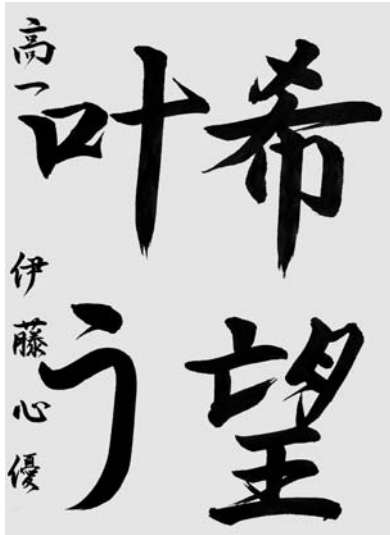 希望
叶う
高一 伊藤心優